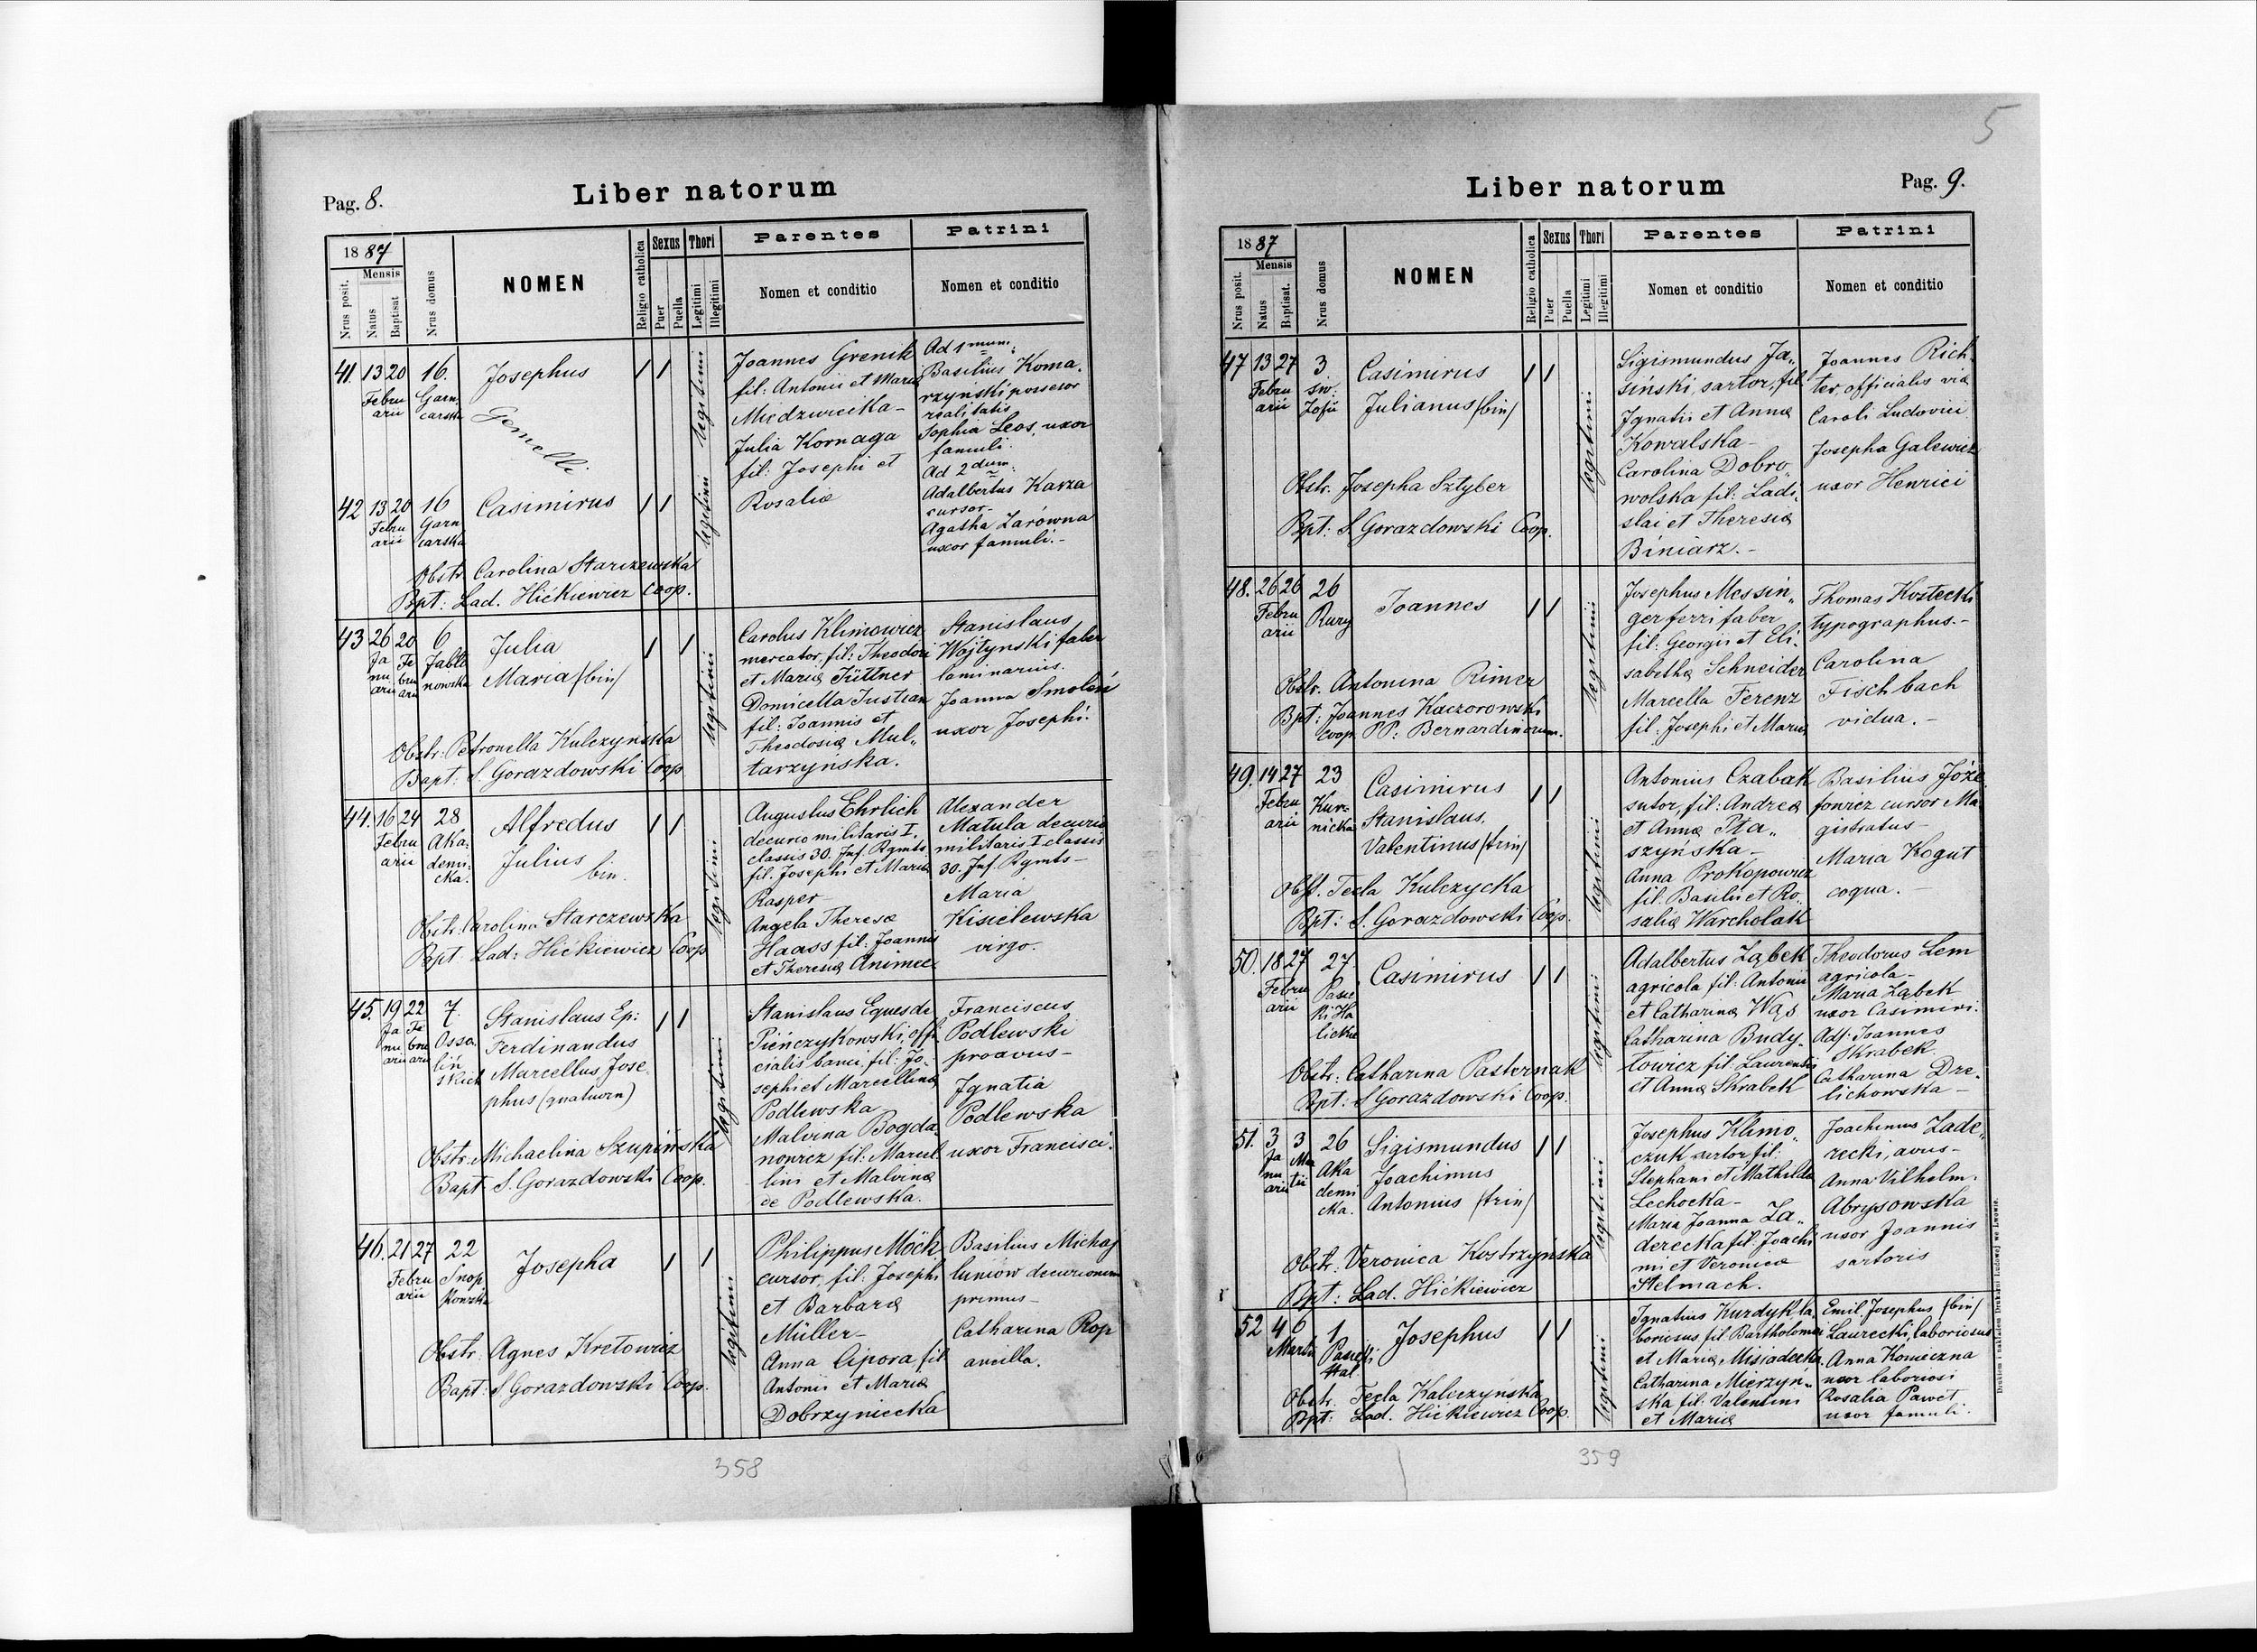 Pag. 8.
Liber natorum
1887
Nrus posit.
Mensis
Natus
Baptisat
Nrus domus
NOMEN
Religio catholica
Sexus
Puer
Puella
Thori
Legitimi
Illegitimi
Parentes
Nomen et conditio
Patrini
Nomen et conditio
41. 13 20 16. Josephus
Febru
arii
Garn
carska
Gemelli
legitimi
Joannes Grenik
fil: Antonii et Mariæ
Miedzwiecka-
Julia Kornaga
fil: Josephi et
Rosaliæ
Ad 1mum:
Basilius Koma,
rzyński possesor
realitatis
Sophia Leos, uxor
famuli.
Ad 2dum:
Adalbertus Karza
cursor-
Agatha Zarówna
uxor famuli.-
42 13 20 16 Casimirus
Febru
arii
Garn
carska
legitimi
Obstr. Carolina Starczewska
Bpt: Lad. Hićkiewicz Coop.
43 26 20 6 Julia
Maria /bin/
Ja
nu
arii
Fe
bru
arii
Jabło
nowska
legitimi
Carolus Klimowicz
mercator, fil: Theodori
et Mariæ Jüttner
Domicella Justian
fil: Joannis et
Theodosiæ Mul„
tarzyńska.
Stanislaus
Wojtynski faber
laminarius.
Joanna Smoleń
uxor Josephi.
Obstr: Petronella Kulczyńska
Bapt: S. Gorazdowski Coop
44. 16 24 28 Alfredus
Julius bin.
Febru
arii
Aka
demi
cka.
legitimi
Augustus Ehrlich
decurio militaris I.
classis 30. Inf. Rgmts
fil. Josephi et Mariæ
Kasper
Angela Theresæ
Haass fil: Joannis
et Theresiæ Animee
Alexander
Matula decurio
militaris I classis
30. Inf. Rgmts-
Maria
Kisielewska
virgo.
Obstr: Carolina Starczewska
Bapt. Lad: Hićkiewicz Coop
45. 19 22 7. Stanislaus Ep:
Ferdinandus
Marcellus Jose
phus (quatuorn)
Ja
nu
arii
Fe
bru
arii
Osso
liń
skich
legitimi
Stanislaus Eques de
Pieńczykowski, offi
cialis banci fil: Jo„
sephi et Marcellinæ
Podlewska
Malvina Bogda„
nowicz fil: Marcel
lini et Malvinæ
de Podlewska.
Franciscus
Podlewski
proavus-
Ignatia
Podlewska
uxor Francisci.
Obstr. Michaelina Szupińska
Bapt. S. Gorazdowski Coop.
46. 21 27 22 Josepha
Febru
arii
Snop
kowska
legitimi
Philippus Möck
cursor, fil: Josephi
et Barbaræ
Müller-
Anna Cipora fil
Antonii et Mariæ
Dobrzyniecka
Basilius Michaj
luniów decurionum
primus-
Catharina Rop
ancilla.
Obstr. Agnes Kretowicz
Bapt: S. Gorazdowski Coop.
358
5
Liber natorum
Pag. 9.
1887
Nrus posit.
Mensis
Natus
Baptisat.
Nrus domus
NOMEN
Religio catholica
Sexus
Puer
Puella
Thori
Legitimi
Illegitimi
Parentes
Nomen et conditio
Patrini
Nomen et conditio
47 13 27 3 Casimirus
Julianus /bin/
Febru
arii
św.
Zofii
legitimi
Sigismundus Ja„
siński, sartor, fil:
Ignatii et Annæ
Kowalska-
Carolina Dobro„
wolska fil: Ladi„
slai et Theresiæ
Biniarz.-
Joannes Rich„
ter, officialis viæ
Caroli Ludovici
Josepha Galewicz
uxor Henrici
Obstr. Josepha Sztyber
Bpt: S. Gorazdowski Coop.
48. 26 26 26 Joannes
Febru
arii
Rury
legitimi
Josephus Messin„
ger ferri faber
fil: Georgii et Eli„
sabethæ Schneider
Marcella Ferenz
fil: Josephi et Mariæ
Thomas Kostecki
typographus.-
Carolina
Fischbach
vidua.-
Obstr. Antonina Rimer
Bpt: Joannes Kaczorowski
Coop. PP: Bernardinorum.
49. 14 27 23 Casimirus
Stanislaus.
Valentinus /trin/
Febru
arii
Kur
nicka
legitimi
Antonius Czabak
sutor, fil: Andreæ
et Annæ Pta„
szyńska-
Anna Prokopowicz
fil: Basilii et Ro„
saliæ Warcholak
Basilius Józe
fowicz cursor Ma
gistratus-
Maria Kogut
coqua.-
Obst. Tecla Kulczycka
Bpt: S. Gorazdowski Coop.
50. 18 27 27 Casimirus
Febru
arii
Pasie
ki Ha
lickie
legitimi
Adalbertus Ząbek
agricola fil: Antonii
et Catharinæ Wąs
Catharina Budy„
łowicz fil: Laurentii
et Annæ Skrabek
Theodorus Lem
agricola-
Maria Ząbek
uxor Casimiri.
Adj: Joannes
Skrabek
Catharina Dre„
lichowska-
Obstr: Catharina Pasternak
Bpt: S Gorazdowski Coop.
51. 3 3 26 Sigismundus
Joachimus
Antonius /trin/
Ja
nu
arii
Mar
tii
Aka
demi
cka.
legitimi
Josephus Klimo„
czuk sutor fil:
Stephani et Mathildæ
Lechocka-
Maria Joanna Za„
derecka fil: Joachi
mi et Veronicæ
Stelmach.
Joachimus Zade„
recki, avus-
Anna Vilhelm.
Abrysowska
uxor Joannis
sartoris
Obstr: Veronica Kostrzyńska
Bpt: Lad. Hićkiewicz
52 4 6 1 Josephus
Martii
Pasieki
Hal
legitimi
Ignatius Kurdyk, la„
boriosus, fil. Bartholomæi
et Mariæ Misiodecka.
Catharina Mierzyń„
ska fil: Valentini
et Mariæ
Emil. Josephus /bin/
Laurecki, laboriosus
Anna Konieczna
uxor laboriosi
Rosalia Paweł
uxor famuli.
Obstr. Tecla Kulczyńska
Bpt: Lad. Hićkiewicz Coop.
359
Drukiem i nakładem Drukarni Ludowej we Lwowie.